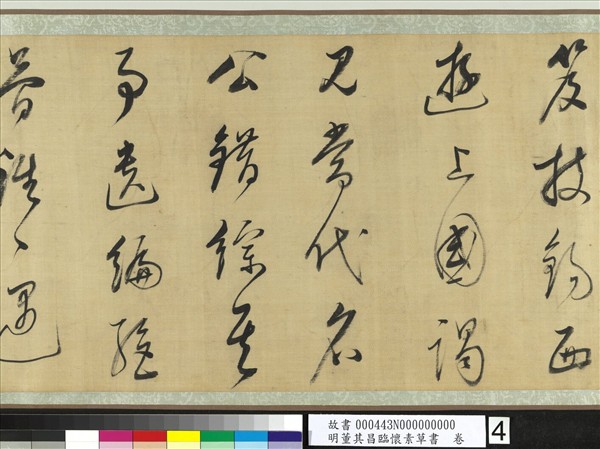 笈杖錫西
遊上國謁
見當代名
公錯綜其
事遺編絕
簡往々遇
故書 000443N000000000
明董其昌臨懷素草書 卷
4